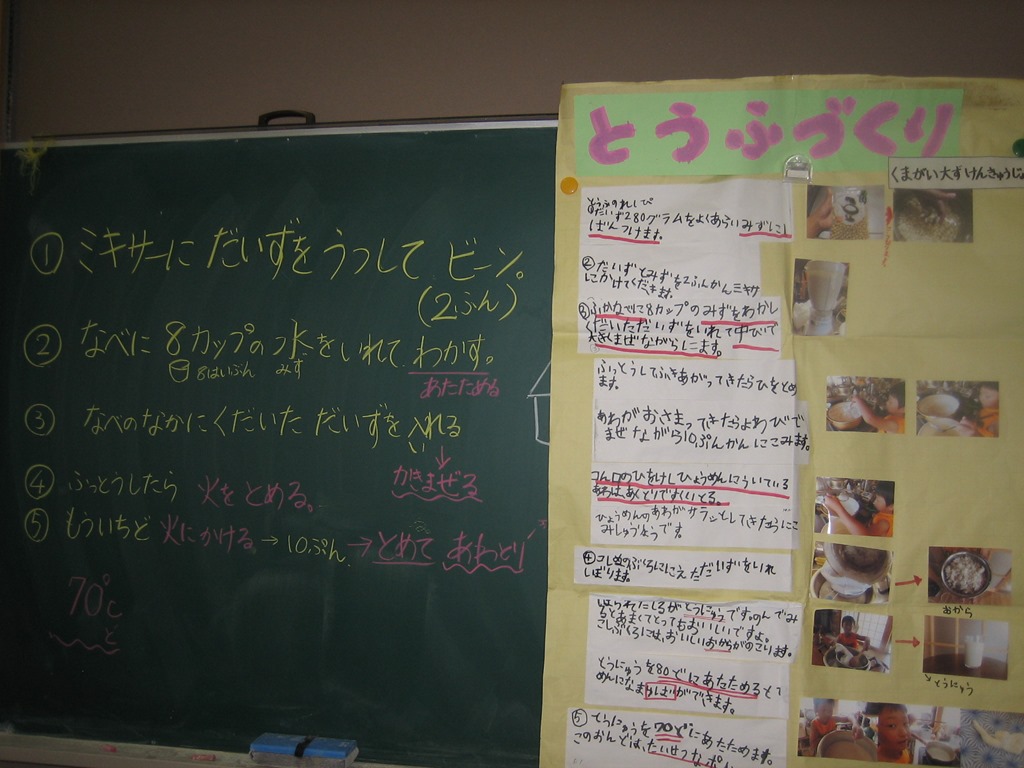 ① ミキサーに だいずを うつして ビーン。
(2ふん)
② なべに 8カップの 水を いれて わかす。
8はいぶん みず
あたためる
③ なべのなかに くだいた だいずを 入れる
い
↓
かきまぜる
④ ふっとうしたら 火を とめる。
⑤ もういちど 火にかける → 10ぷん → とめて あわとり
70℃
ど
とうふづくり
くまがい大ずけんきゅうじょ
だいず280グラムをよくあらいみずにし
ばんつけます。
② だいずとみずを2ふんかんミキサ
にかけてくだきます。
③ ふかなべに8カップのみずをわかし
くだいただいずをいれて中びで
大きくまぜながらにます。
ふっとうしてふきあがってきたらひをとめ
ます。
あわがおさまってきたらよわびで
まぜながら10ぷんかんにこみます。
コンロのひをけしひょうめんにういている
あわはあくとりですくいとる。
ひょうめんのあわがサラッとしてきたらにこ
みしゅうりょうです。
④ こしぬのぶくろににえただいずをいれ
しぼります。
しぼられたしるがとうにゅうです。のんでみ
るとあまくてとってもおいしいですよ。
こしぶくろには、おいしいおからがのこります。
とうにゅうを80どにあたためると
めんになまゆばができます。
⑤ とうにゅうを70どにあたためます。
このおんどは、たいせつな
おから
とうにゅう